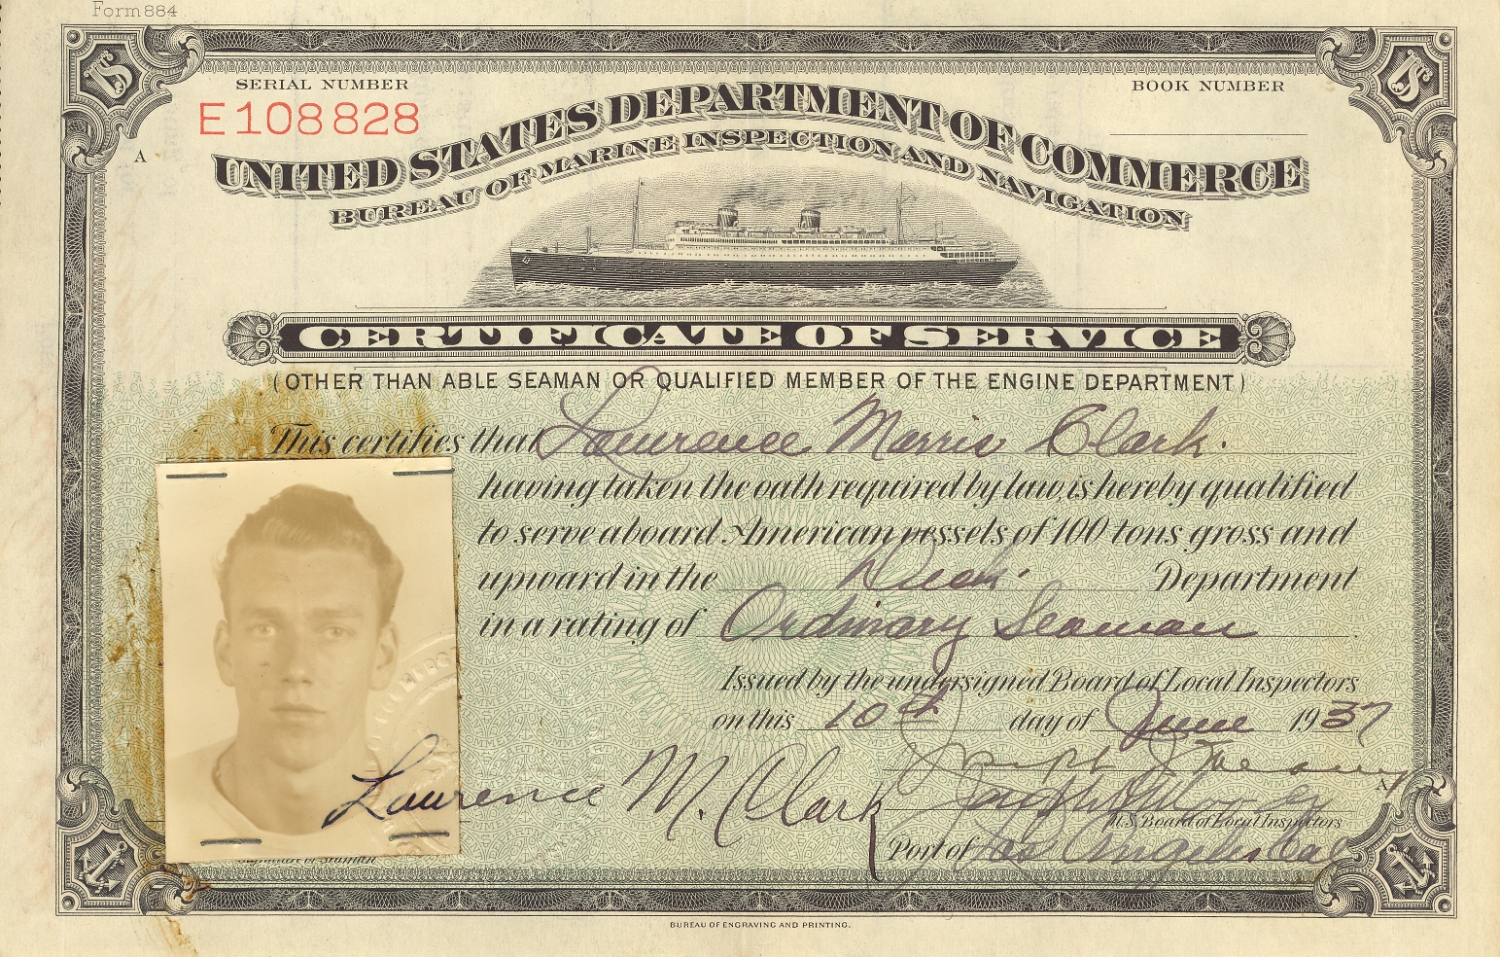 Form 884
SERIAL NUMBER
BOOK NUMBER
E108828
A
UNITED STATES DEPARTMENT OF COMMERCE
BUREAU OF MARINE INSPECTION AND NAVIGATION
CERTIFICATE OF SERVICE
(OTHER THAN ABLE SEAMAN OR QUALIFIED MEMBER OF THE ENGINE DEPARTMENT)
This certifies that Lawrence Morris Clark.
having taken the oath required by law, is hereby qualified
to serve aboard American vessels of 100 tons gross and
upward in the Deck. Department
in a rating of Ordinary Seaman.
Issued by the undersigned Board of Local Inspectors
on this 10th day of June 1937
Lawrence M. Clark
Joseph
U.S. Board of Local Inspectors
Port of Los Angeles Cal
Signature of Seaman
BUREAU OF ENGRAVING AND PRINTING.